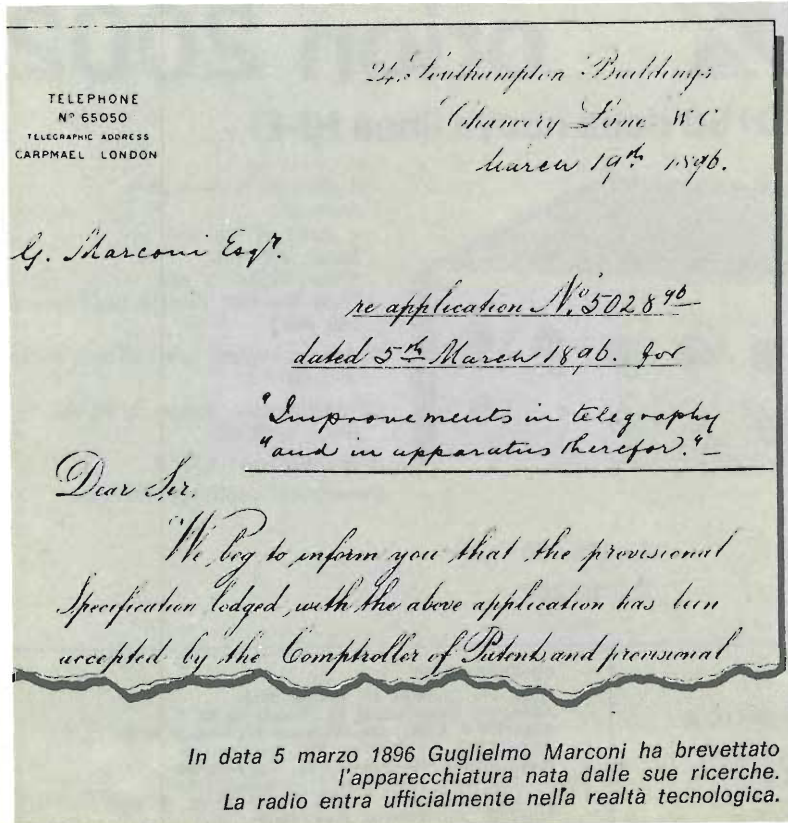 TELEPHONE
Nº 65050
TELEGRAPHIC ADDRESS
CARPMAEL LONDON
24, Southampton Buildings
Chancery Lane W.C.
March 19th 1896.
G. Marconi Esqr.
re application No. 5028 96
dated 5th March 1896. for
"Improvements in telegraphy
"and in apparatus therefor."—
Dear Sir.
We beg to inform you that the provisional
Specification lodged with the above application has been
accepted by the Comptroller of Patents and provisional
In data 5 marzo 1896 Guglielmo Marconi ha brevettato
l'apparecchiatura nata dalle sue ricerche.
La radio entra ufficialmente nella realtà tecnologica.